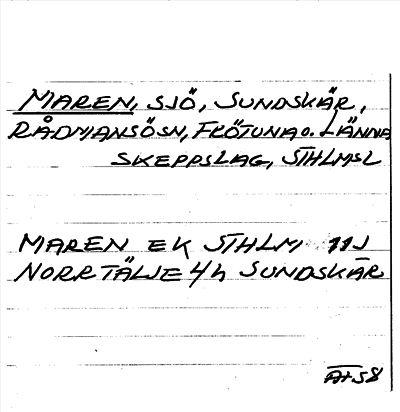 MAREN, SJÖ, SUNDSKÄR,
RÅDMANSÖSN, FRÖTUNA O. LÄNNA
SKEPPSLAG, STHLMSL
MAREN EK STHLM 11J
NORRTÄLJE 4h SUNDSKÄR